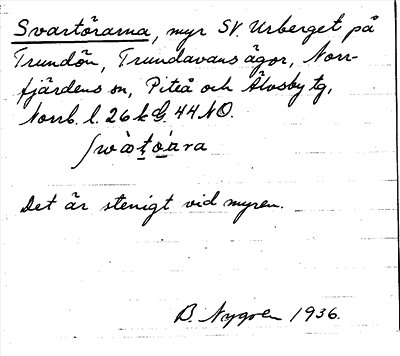 Svartörarna, myr SV. Urberget på
Trundön, Trundavans ägor, Norr-
fjärdens sn, Piteå och Älvsby tg,
Norrb. l. 26 k G. 44 NO.
det är stenigt vid myren.
B. Nygren 1936.